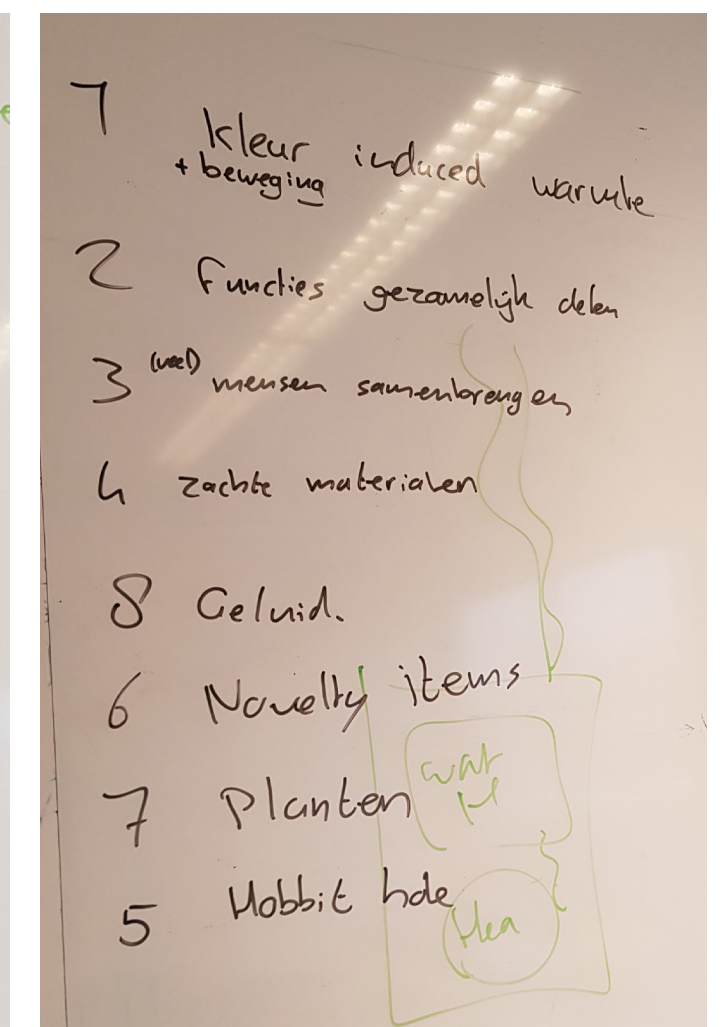 1 kleur induced warmte
+ beweging
2 functies gezamelijk delen
3 (veel) mensen samenbrengen
4 zachte materialen
8 Geluid.
6 Novelty items
7 Planten
5 Hobbit hole